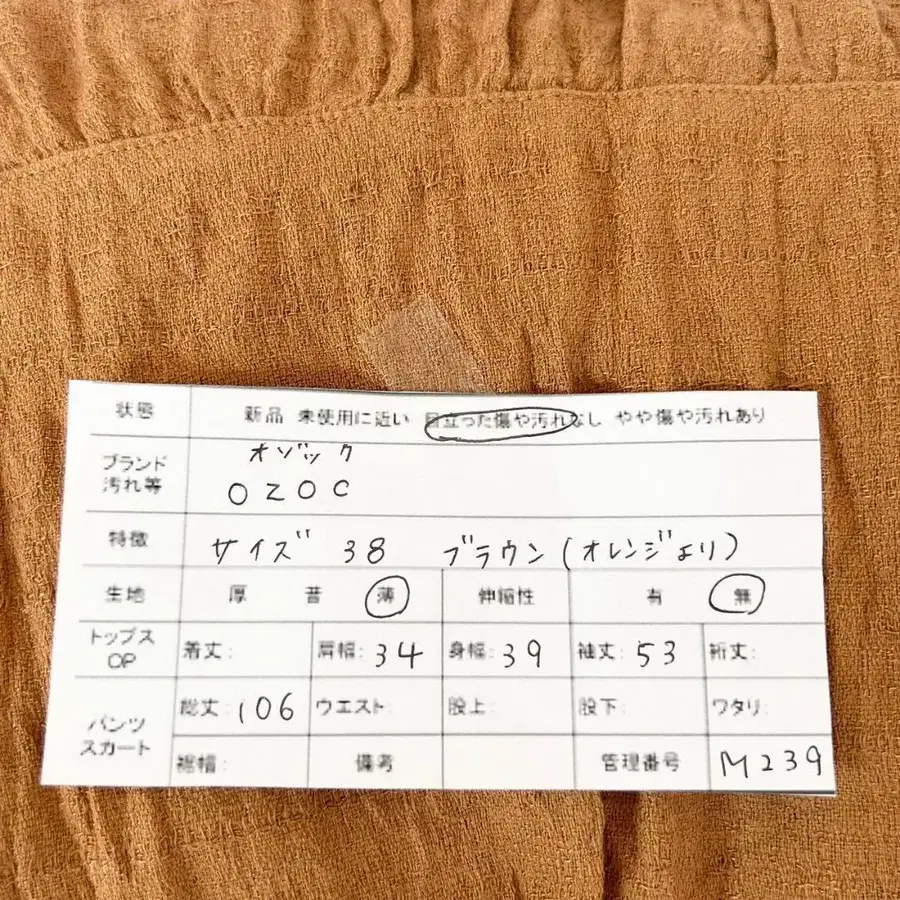 状態 新品 未使用に近い 目立った傷や汚れなし やや傷や汚れあり
オゾック
ブランド
汚れ等 OZOC
特徴 サイズ 38 ブラウン(オレンジより)
生地 厚 普 薄 伸縮性 有 無
トップス
OP 着丈: 肩幅: 34 身幅: 39 袖丈: 53 裄丈:
総丈: 106 ウエスト: 股上: 股下: ワタリ:
パンツ
スカート
裾幅: 備考 管理番号 M239